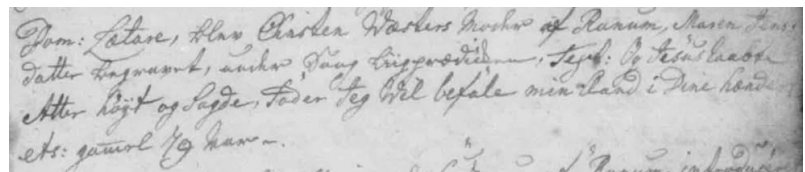 Dom: Lætare, blev Christen Wæsters Moder af Ranum, Maren Jens
datter begravet, under Sang Liigprædiken, Text: Og Jesus raabte
atter høyt og Sagde, Fader Jeg vil befale min Aand i Dine hænder
etc: gamel 79 Aar -.
af Ranum, introduceret